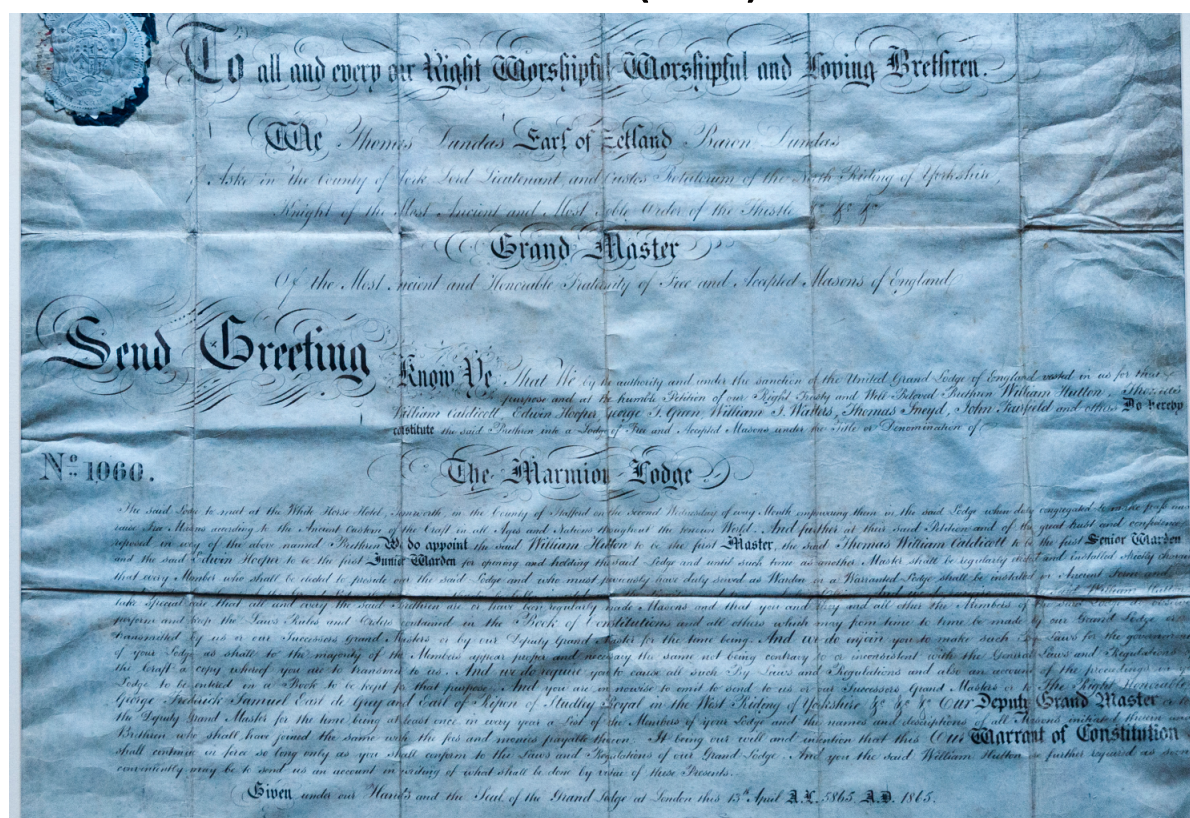 To all and every our Right Worshipful Worshipful and Loving Brethren.
We Thomas Dundas Earl of Zetland Baron Dundas
of Aske in the County of York Lord Lieutenant and Custos Rotulorum of the North Riding of Yorkshire,
Knight of the Most Ancient and Most Noble Order of the Thistle &c &c &c
Grand Master
Of the Most Ancient and Honorable Fraternity of Free and Accepted Masons of England,
Send Greeting
Know Ye That We by the authority and under the sanction of the United Grand Lodge of England vested in us for that
purpose and at the humble Petition of our Right Trusty and Well Beloved Brethren William Hutton, Thomas
William Caldicott, Edwin Hooper, George T. Green, William S. Walters, Thomas Sneyd, John Fairfield and others Do hereby
constitute the said Brethren into a Lodge of Free and Accepted Masons under the Title or Denomination of
No 1060.
The Marmion Lodge
The said Lodge to meet at the White Horse Hotel, Tamworth, in the County of Stafford on the Second Wednesday of every Month empowering them in the said Lodge when duly congregated to
raise Free Masons according to the Ancient Custom of the Craft in all Ages and Nations throughout the known World. And further at their said Petition and of the great trust and confidence
reposed in every of the above named Brethren We do appoint the said William Hutton to be the first Master, the said Thomas William Caldicott to be the first Senior Warden
and the said Edwin Hooper to be the first Junior Warden for opening and holding the said Lodge and until such time as another Master shall be regularly elected and Installed strictly
that every Member who shall be elected to preside over the said Lodge and who must previously have duly served as Warden in a Warranted Lodge shall be installed in Ancient
take special care that all and every the said Brethren are or have been regularly made Masons and that you and they and all other the Members of the said Lodge do
perform and keep the Laws Rules and Orders contained in the Book of Constitutions and all others which may from time to time be made by our Grand Lodge or
transmitted by us or our Successors Grand Masters or by our Deputy Grand Master for the time being. And we do enjoin you to make such Bye Laws for the government
of your Lodge as shall to the majority of the Members appear proper and necessary the same not being contrary to or inconsistent with the General Laws and Regulations
the Craft a copy whereof you are to transmit to us. And we do require you to cause all such Bye Laws and Regulations and also an account of the proceedings in
Lodge to be entered in a Book to be kept for that purpose. And you are in nowise to omit to send to us or our Successors Grand Masters or to The Right Honorable
George Frederick Samuel Earl de Grey and Earl of Ripon of Studley Royal in the West Riding of Yorkshire &c &c &c Our Deputy Grand Master
the Deputy Grand Master for the time being at least once in every year a List of the Members of your Lodge and the names and descriptions of all Masons initiated therein and
Brethren who shall have joined the same with the fees and monies payable thereon. It being our will and intention that this Our Warrant of Constitution
shall continue in force so long only as you shall conform to the Laws and Regulations of our Grand Lodge. And you the said William Hutton are further required as soon
conveniently may be to send us an account in writing of what shall be done by virtue of these Presents.
Given under our Hands and the Seal of the Grand Lodge at London this 13th April A.L. 5865, A.D. 1865.